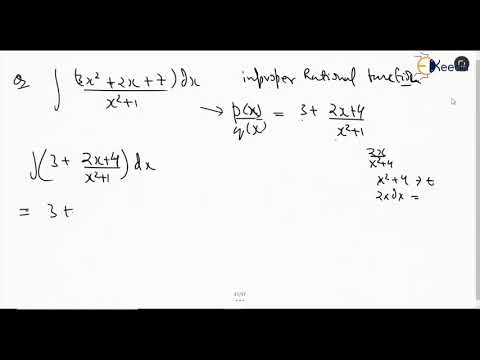 Q ∫ (3x² + 2x + 7) dx / x² + 1   improper Rational function
→ p(x)/q(x) = 3 + 2x+4 / x²+1
∫(3 + 2x+4 / x²+1) dx
x²+4
x² + 4 → t
2x dx =
= 3 +